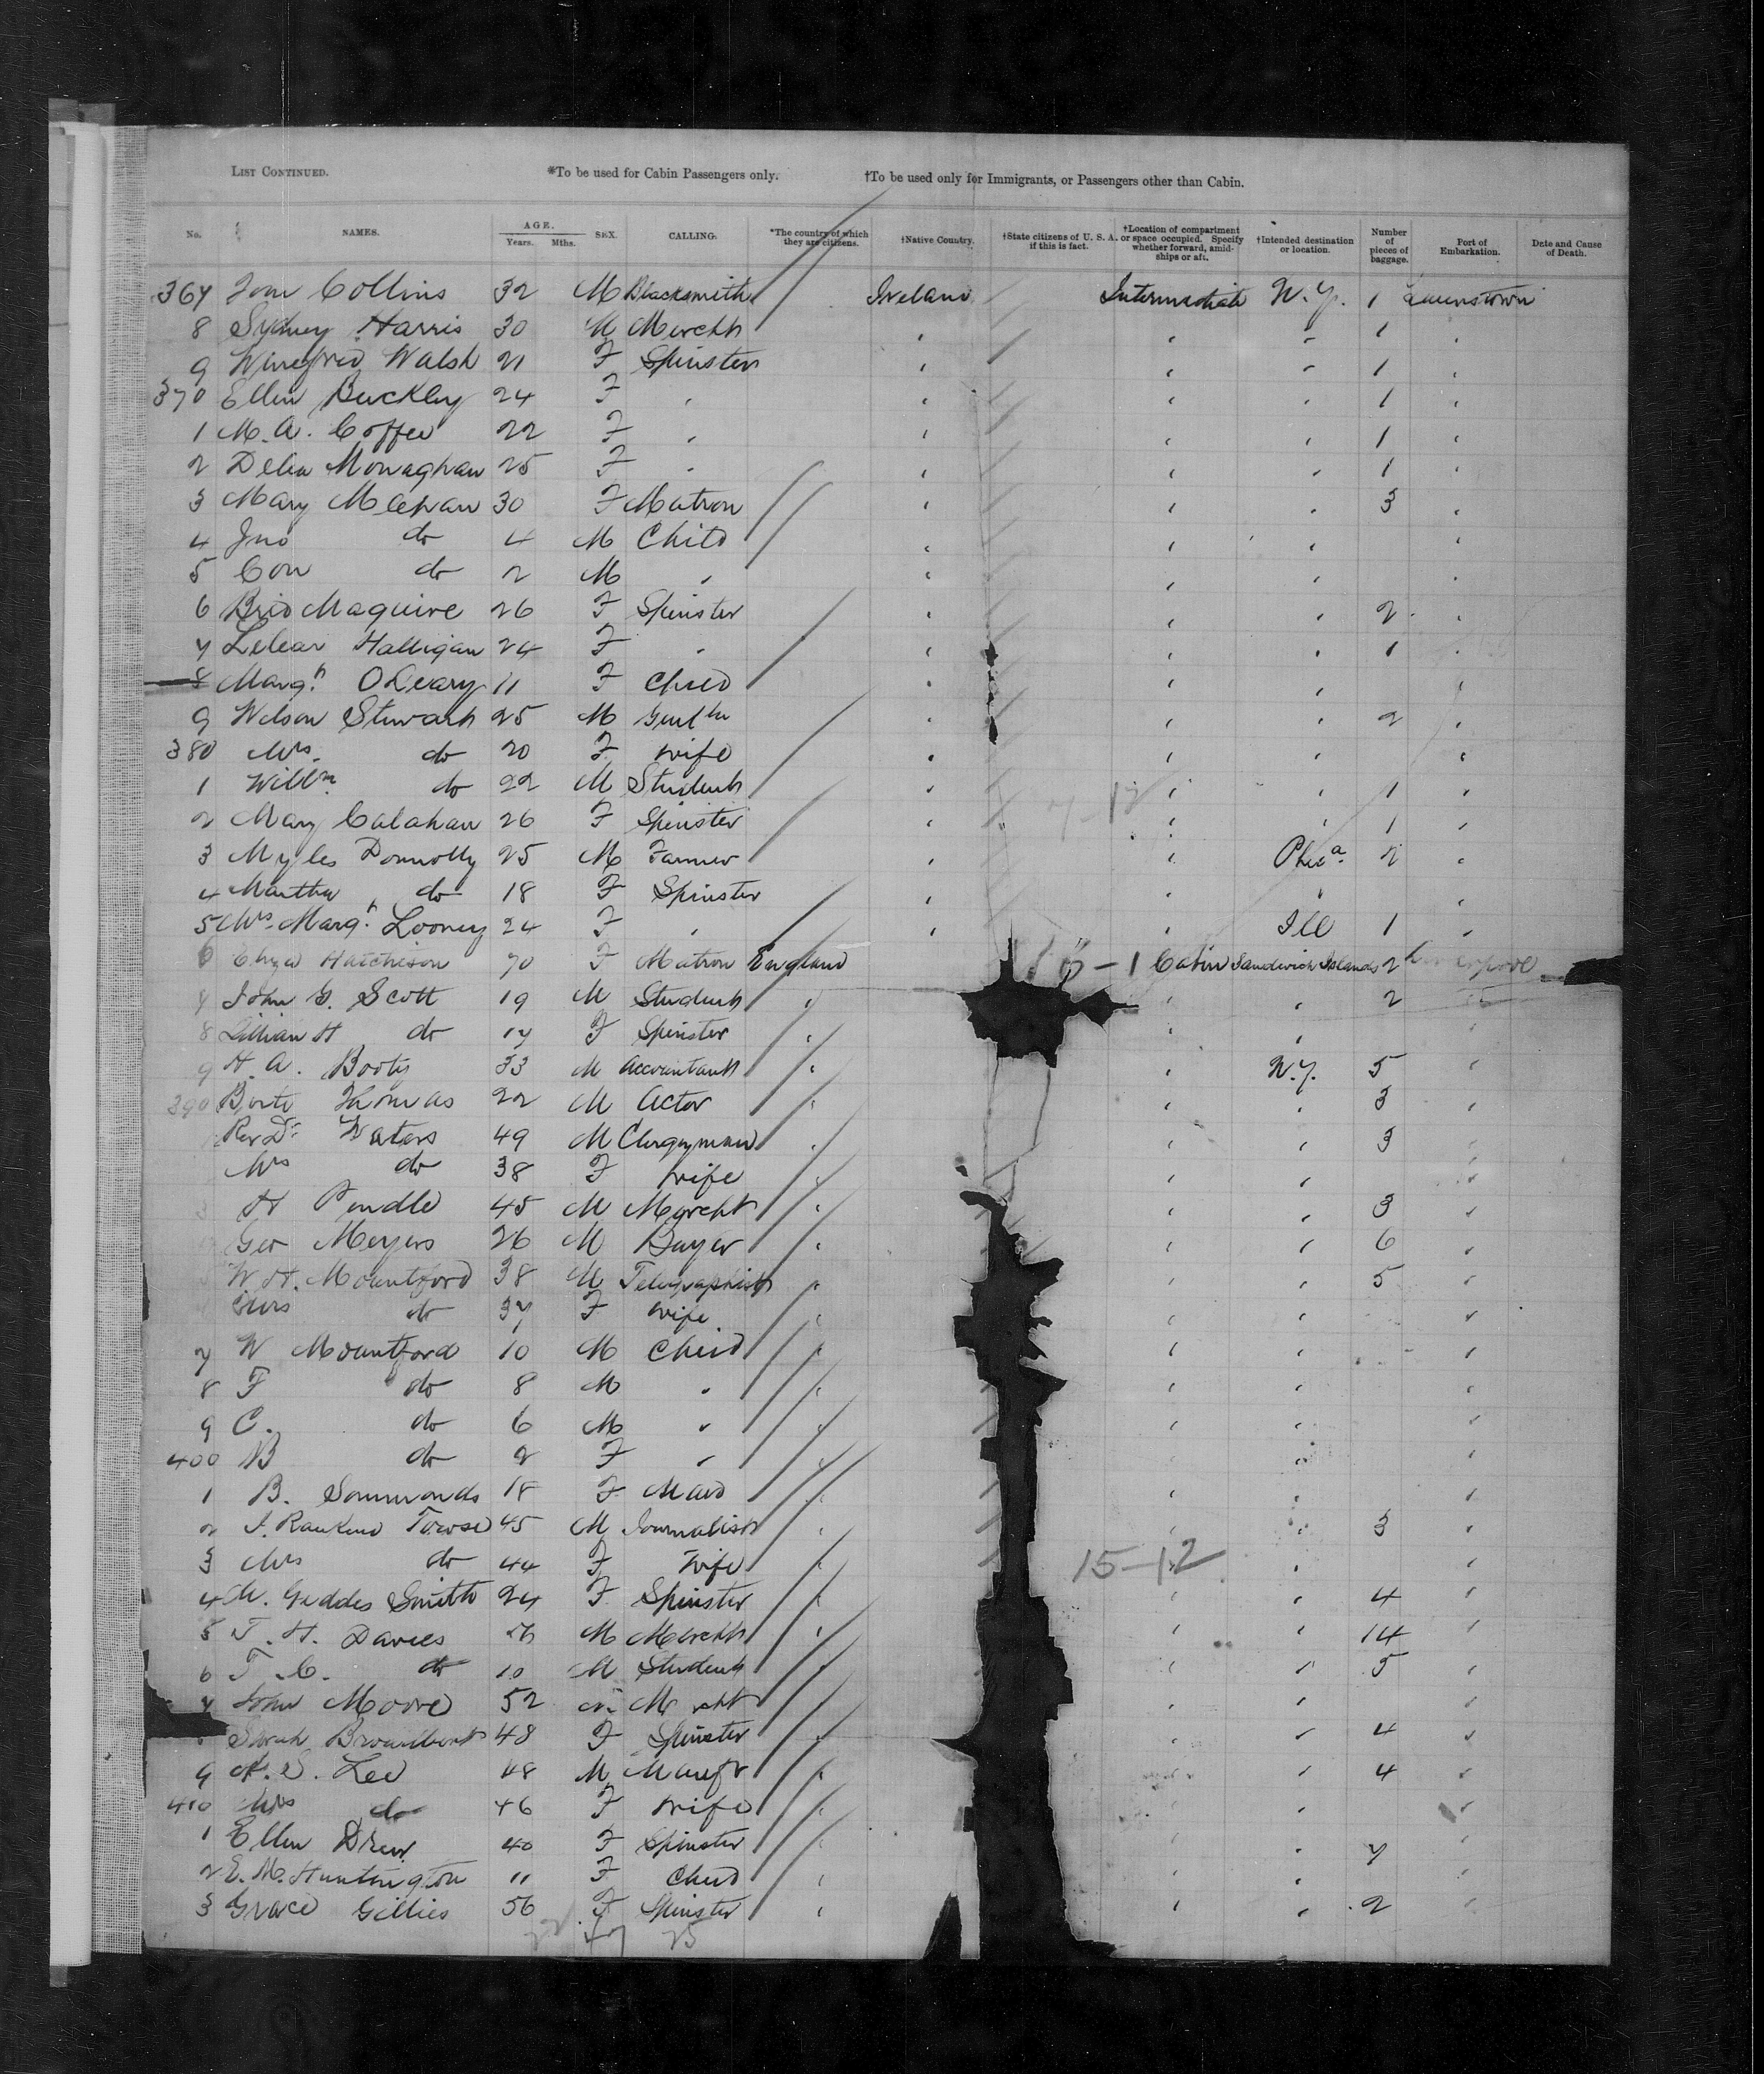 LIST CONTINUED. *To be used for Cabin Passengers only. †To be used only for Immigrants, or Passengers other than Cabin.
No. NAMES. AGE. Years. Mths. SEX. CALLING. *The country of which they are citizens. †Native Country. †State citizens of U. S. A. if this is fact. †Location of compartment or space occupied. Specify whether forward, amidships or aft. †Intended destination or location. Number of pieces of baggage. Port of Embarkation. Date and Cause of Death.
367 Tom Collins 32 M Blacksmith Ireland Intermediate N.Y. 1 Queenstown
8 Sydney Harris 30 M Mercht " " " 1 "
9 Winefred Walsh 21 F Spinster " " " 1 "
370 Ellen Buckley 24 F " " " " 1 "
1 M. A. Coffee 22 F " " " " 1 "
2 Delia Monaghan 25 F " " " " 1 "
3 Mary Meehan 30 F Matron " " " 3 "
4 Jno do 4 M Child " " " "
5 Con do 2 M " " " " "
6 Brid Maguire 26 F Spinster " " " 2 "
7 Halligan 24 F " " " " 1 "
8 Margt O Leary 11 F Child " " " "
9 Wilson Stewart 25 M Gentln " " " 2 "
380 Mrs. do 20 F Wife " " " "
1 Willm do 22 M Student " " " 1 "
2 Mary Calahan 26 F Spinster " " " 1 "
3 Myles Donnolly 25 M Farmer " " Phila 2 "
4 Martha do 18 F Spinster " " " "
5 Mrs. Margt Looney 24 F " " " Ill 1 "
6 Eliza Hutcheson 70 F Matron England Cabin Sandwich Islands 2 Liverpool
7 John G. Scott 19 M Student " " " 2 "
8 Lillian H do 17 F Spinster " " " "
9 H. A. Booty 33 M Accountant " " N.Y. 5 "
390 Thomas 22 M Actor " " " 3 "
Rev Dr Waters 49 M Clergyman " " " 3 "
Mrs do 38 F Wife " " "
3 H Pendle 45 M Mercht " " " 3 "
Geo Meyers 26 M Buyer " " " 6 "
W. H. Mountford 38 M Telegraphist " " " 5 "
Mrs do 37 F Wife " " " "
7 W Mountford 10 M Child " " " "
8 F do 8 M " " " " "
9 C. do 6 M " " " " "
400 B do 2 F " " " " "
1 B. Sommonds 18 F Maid " " " "
2 J. Rankine Towse 45 M Journalist " " " 3 "
3 Mrs do 44 F Wife " 15-12 " "
4 M. Geddes Smith 24 F Spinster " " " 4 "
5 T. H. Davies M Mercht " " " 14 "
6 T. C. do 10 M Student " " " 5 "
7 John Moore 52 M " " "
Sarah Broadbent 48 F Spinster " " 4 "
9 Lee 48 M Manufr " " 4 "
410 Mrs do 46 F Wife " " "
1 Ellen Drew 40 F Spinster " " " 7 "
2 E. M. Huntington 11 F Child " " " "
3 Grace Gillies 56 F Spinster " " " 2 "